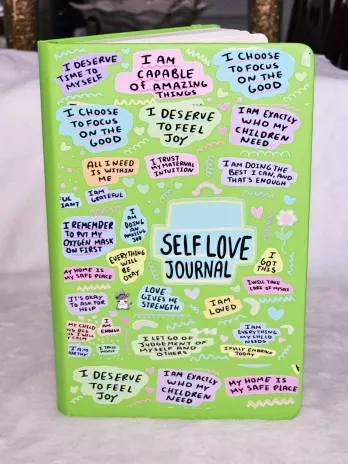 I DESERVE
TIME TO
MYSELF
I AM
CAPABLE
OF AMAZING
THINGS
I CHOOSE
TO FOCUS
ON THE
GOOD
I CHOOSE
TO FOCUS
ON THE
GOOD
I DESERVE
TO FEEL
JOY
I AM EXACTLY
WHO MY
CHILDREN
NEED
ALL I NEED
IS WITHIN
ME
I TRUST
MY MATERNAL
INTUITION
I AM DOING THE
BEST I CAN, AND
THAT'S ENOUGH
I AM
GRATEFUL
I REMEMBER
TO PUT MY
OXYGEN MASK
ON FIRST
I AM
DOING
AN
AMAZING
JOB
SELF LOVE
JOURNAL
EVERYTHING
WILL
BE
OKAY
I
GOT
THIS
MY HOME IS
MY SAFE PLACE
I WILL TAKE
CARE OF MYSELF
IT'S OKAY
TO ASK FOR
HELP
LOVE
GIVES ME
STRENGTH
I AM
LOVED
MY CHILD
I AM
ENOUGH
I AM
EVERYTHING
MY CHILD
NEEDS
I LET GO OF
JUDGEMENT OF
MYSELF AND
OTHERS
I FULLY EMBRACE
TODAY
I AM
WORTHY
I TRUST
MYSELF
I DESERVE
TO FEEL
JOY
I AM EXACTLY
WHO MY
CHILDREN
NEED
MY HOME IS
MY SAFE PLACE